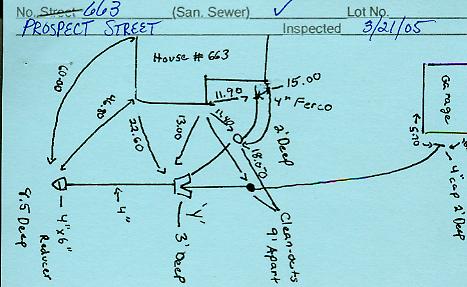 No. Street 663 (San. Sewer) ✓ Lot No.
PROSPECT STREET Inspected 3/21/05
House # 663
60.00
46.80
22.60
13.00
11.90
15.00
4" Ferco
2' Deep
18.00
Garage
5.70
4" cap 2' Deep
Clean-outs
9' Apart
'Y'
3' Deep
4"
4"x6"
Reducer
8.5 Deep